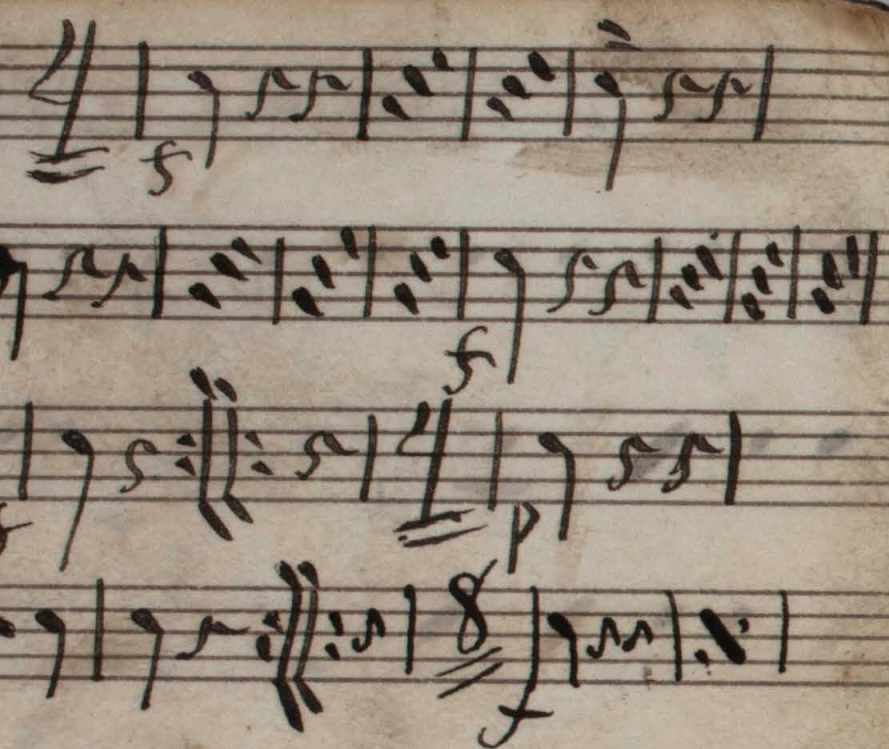 4
f
f
4
p
8
f